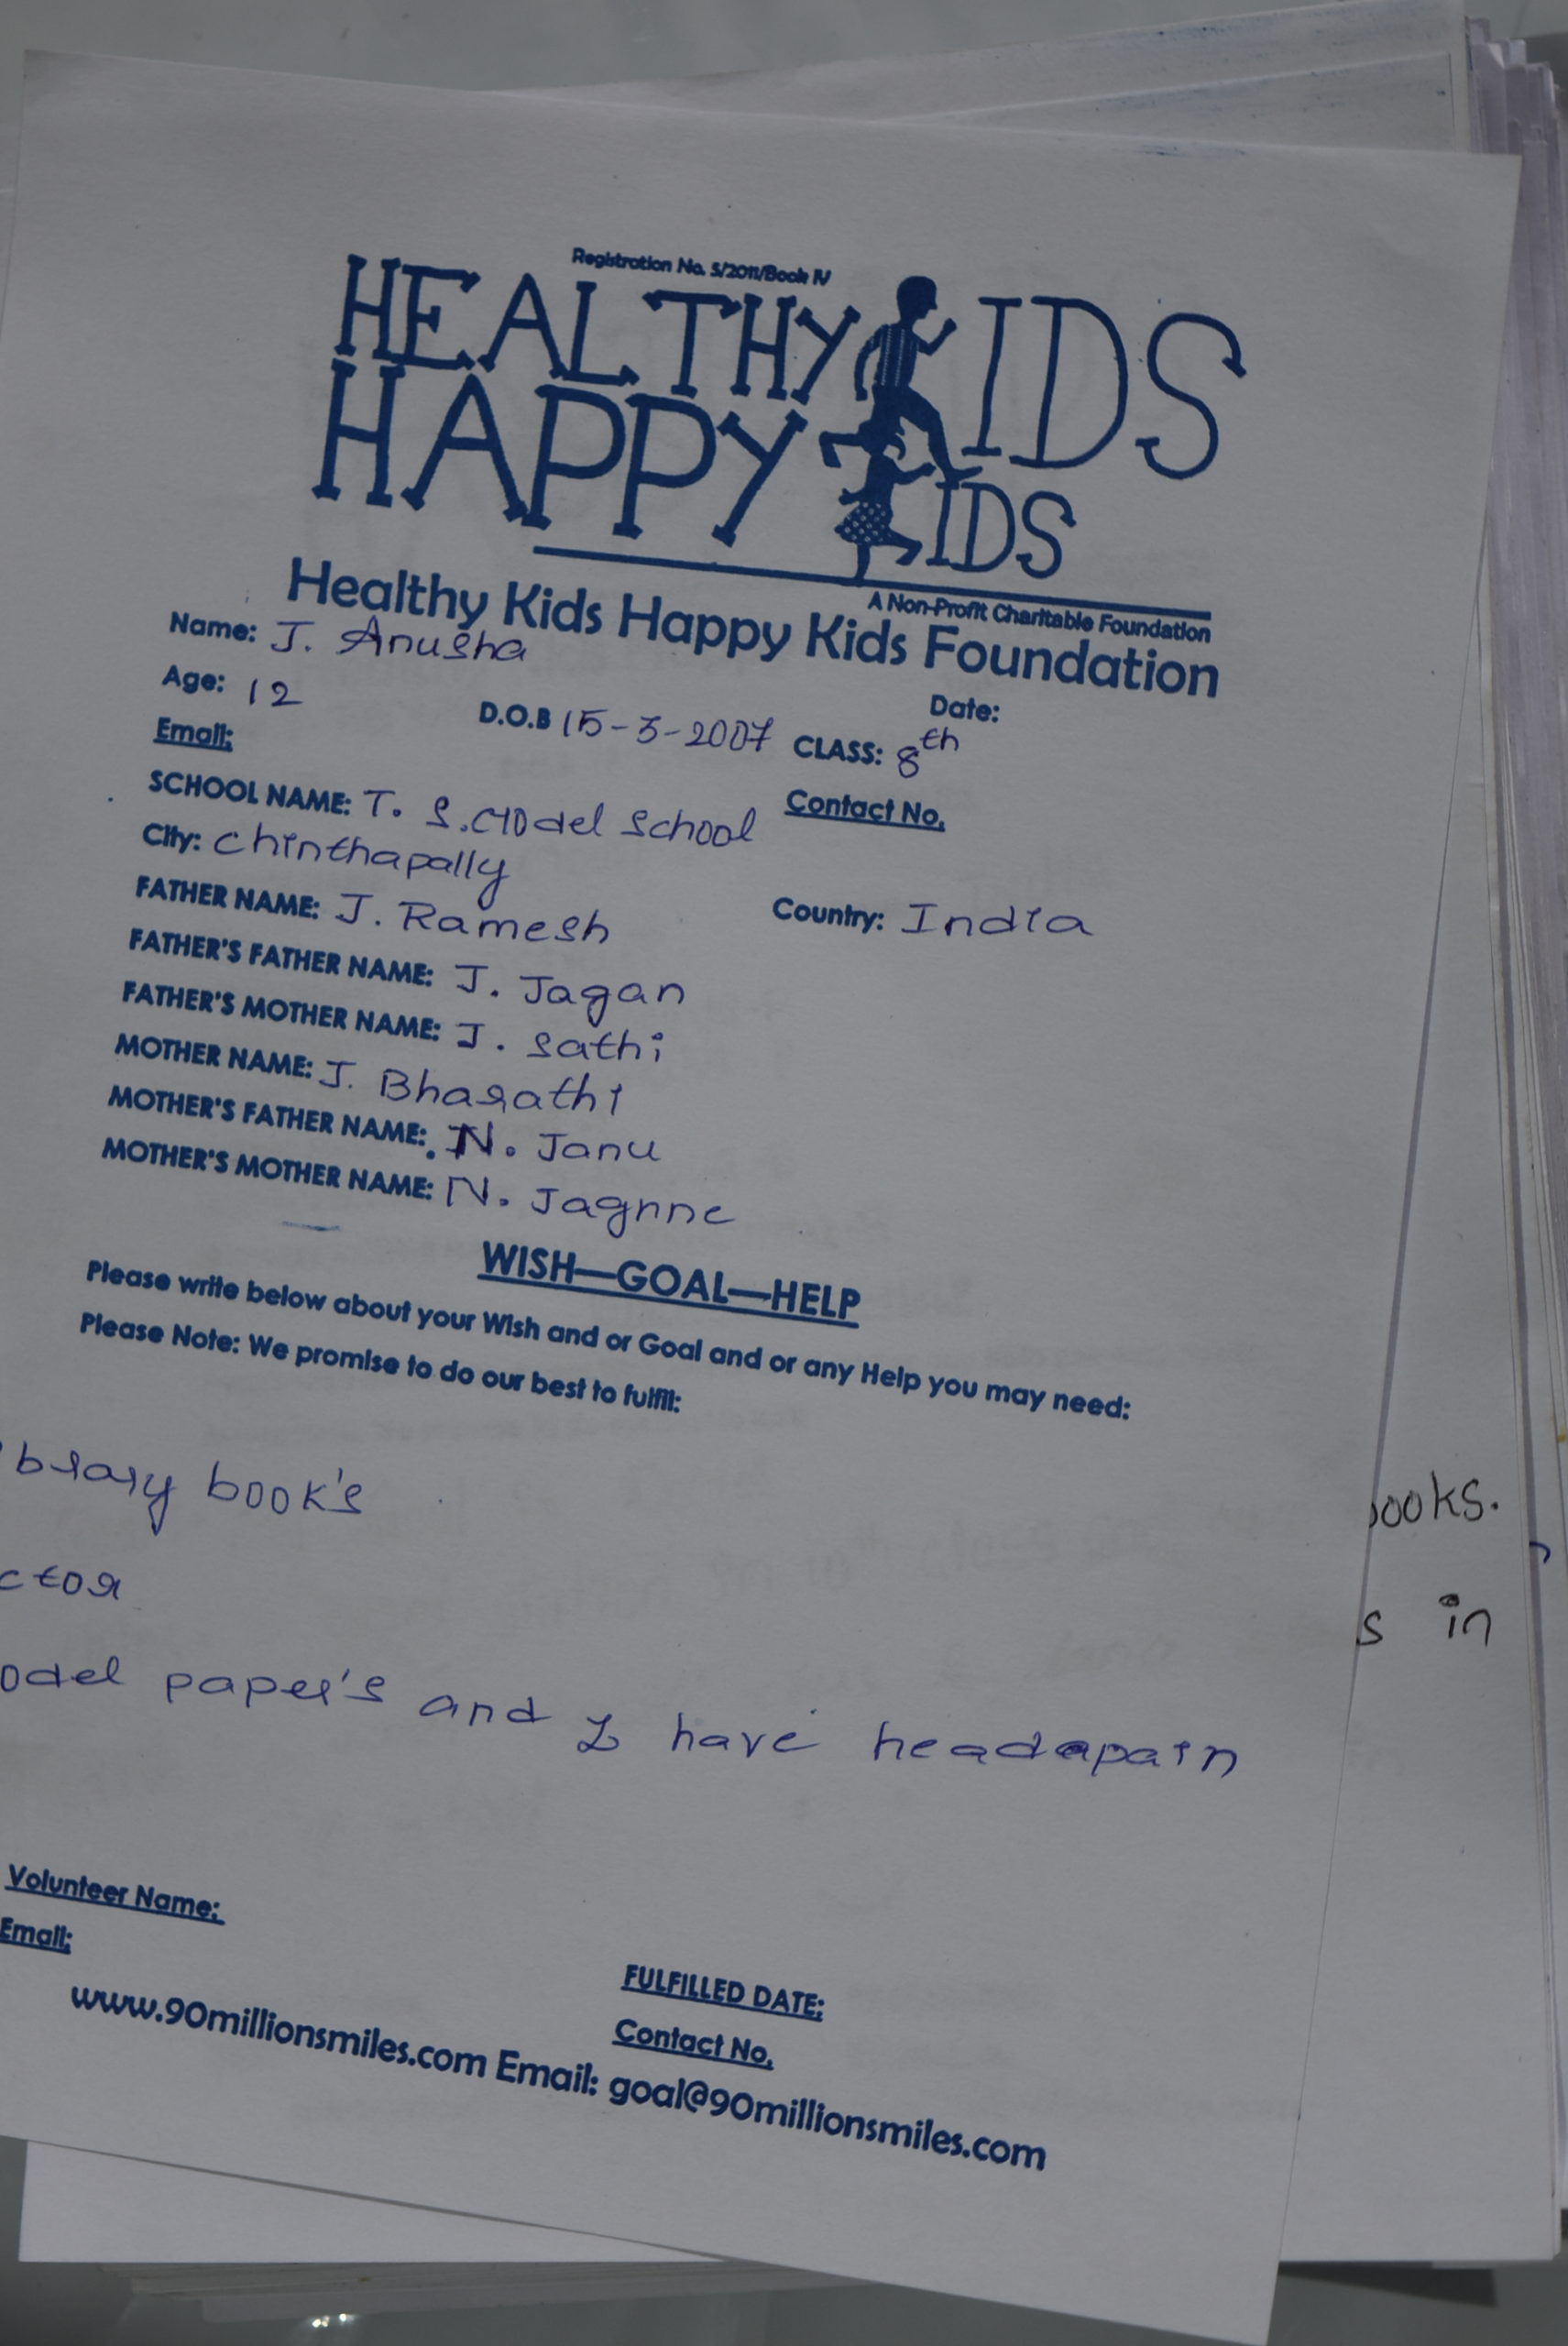 Registration No. 5/2011/Book IV
HEALTHY KIDS
HAPPY KIDS
A Non-Profit Charitable Foundation
Healthy Kids Happy Kids Foundation
Name: J. Anusha
Date:
Age: 12 D.O.B 15-3-2007 CLASS: 8th
Email: Contact No.
SCHOOL NAME: T. S. Model School
City: Chinthapally Country: India
FATHER NAME: J. Ramesh
FATHER'S FATHER NAME: J. Jagan
FATHER'S MOTHER NAME: J. Sathi
MOTHER NAME: J. Bharathi
MOTHER'S FATHER NAME: N. Janu
MOTHER'S MOTHER NAME: N. Jagnne
WISH—GOAL—HELP
Please write below about your Wish and or Goal and or any Help you may need:
Please Note: We promise to do our best to fulfil:
brary book's
ctor
odel paper's and I have headapain
ooks.
s in
Volunteer Name: FULFILLED DATE:
Email: Contact No.
www.90millionsmiles.com Email: goal@90millionsmiles.com